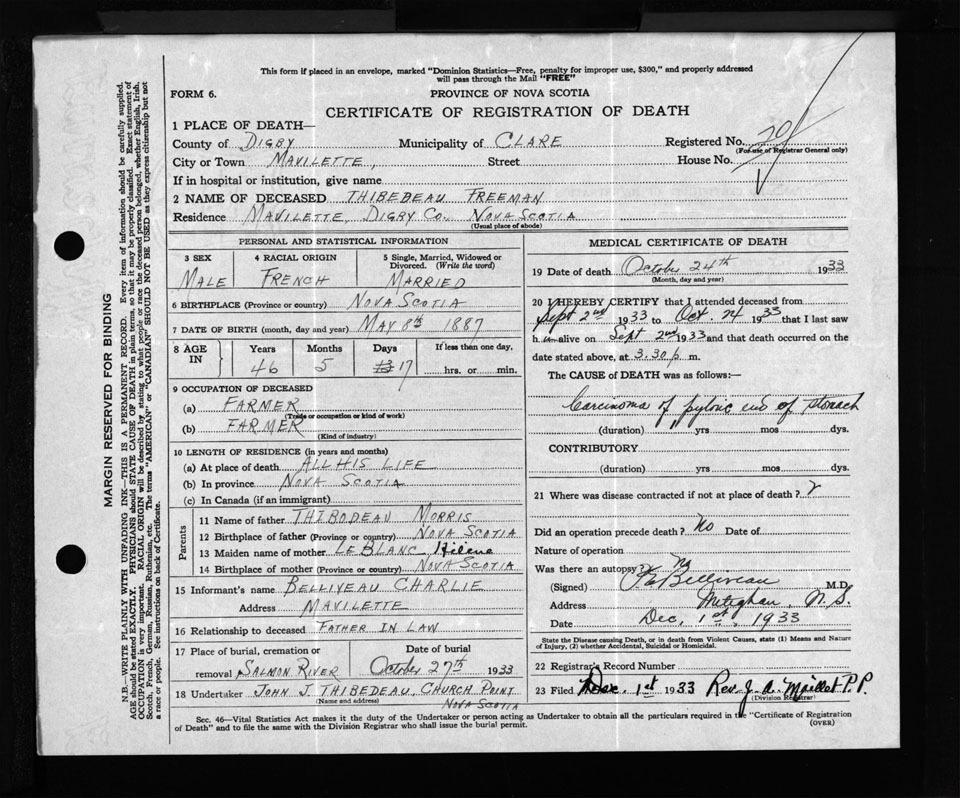 This form if placed in an envelope, marked "Dominion Statistics—Free, penalty for improper use, $300," and properly addressed
will pass through the Mail "FREE"
FORM 6.
PROVINCE OF NOVA SCOTIA
CERTIFICATE OF REGISTRATION OF DEATH
1 PLACE OF DEATH—
County of DIGBY Municipality of CLARE Registered No.
(For use of Registrar General only)
City or Town MAVILETTE, Street House No.
If in hospital or institution, give name
2 NAME OF DECEASED THIBEDEAU FREEMAN
Residence MAVILETTE, DIGBY CO. NOVA SCOTIA
(Usual place of abode)
PERSONAL AND STATISTICAL INFORMATION
3 SEX 4 RACIAL ORIGIN 5 Single, Married, Widowed or Divorced. (Write the word)
MALE FRENCH MARRIED
6 BIRTHPLACE (Province or country) NOVA SCOTIA
7 DATE OF BIRTH (month, day and year) MAY 8th 1887
8 AGE IN Years Months Days If less than one day,
46 5 17 hrs. or min.
9 OCCUPATION OF DECEASED
(a) FARMER
(Trade or occupation or kind of work)
(b) FARMER
(Kind of industry)
10 LENGTH OF RESIDENCE (in years and months)
(a) At place of death ALL HIS LIFE
(b) In province NOVA SCOTIA
(c) In Canada (if an immigrant)
Parents
11 Name of father THIBODEAU MORRIS
12 Birthplace of father (Province or country) NOVA SCOTIA
13 Maiden name of mother LEBLANC Hilène
14 Birthplace of mother (Province or country) NOVA SCOTIA
15 Informant's name BELLIVEAU CHARLIE
Address MAVILETTE
16 Relationship to deceased FATHER IN LAW
17 Place of burial, cremation or Date of burial
removal SALMON RIVER October 27th 1933
18 Undertaker JOHN J. THIBEDEAU, CHURCH POINT
(Name and address) NOVA SCOTIA
MEDICAL CERTIFICATE OF DEATH
19 Date of death October 24th 1933
(Month, day and year)
20 I HEREBY CERTIFY that I attended deceased from
Sept 2nd 1933 to Oct. 24 1933 that I last saw
h im alive on Sept 2nd 1933 and that death occurred on the
date stated above, at 3.30 p. m.
The CAUSE of DEATH was as follows:—
Carcinoma of pyloric end of stomach
(duration) yrs mos dys.
CONTRIBUTORY
(duration) yrs mos dys.
21 Where was disease contracted if not at place of death? ?
Did an operation precede death? No Date of
Nature of operation
Was there an autopsy? No
(Signed) Belliveau M.D.
Address Meteghan, N.S.
Date Dec, 1st, 1933
State the Disease causing Death, or in death from Violent Causes, state (1) Means and Nature
of Injury, (2) whether Accidental, Suicidal or Homicidal.
22 Registrar's Record Number
23 Filed Dec. 1st 1933 Rev. J. A. Maillet P.P.
(Division Registrar)
Sec. 46—Vital Statistics Act makes it the duty of the Undertaker or person acting as Undertaker to obtain all the particulars required in the "Certificate of Registration
of Death" and to file the same with the Division Registrar who shall issue the burial permit. (OVER)
MARGIN RESERVED FOR BINDING
N.B.—WRITE PLAINLY WITH UNFADING INK—THIS IS A PERMANENT RECORD. Every item of information should be carefully supplied.
AGE should be stated EXACTLY. PHYSICIANS should STATE CAUSE OF DEATH in plain terms, so that it may be properly classified. Exact statement of
OCCUPATION is very important. RACIAL ORIGIN will be described by stating to what people or race the deceased person belonged, whether English, Irish,
Scotch, French, German, Russian, Ruthenian, etc. The terms "AMERICAN" or "CANADIAN" SHOULD NOT BE USED as they express citizenship but not
a race or people. See instructions on back of Certificate.